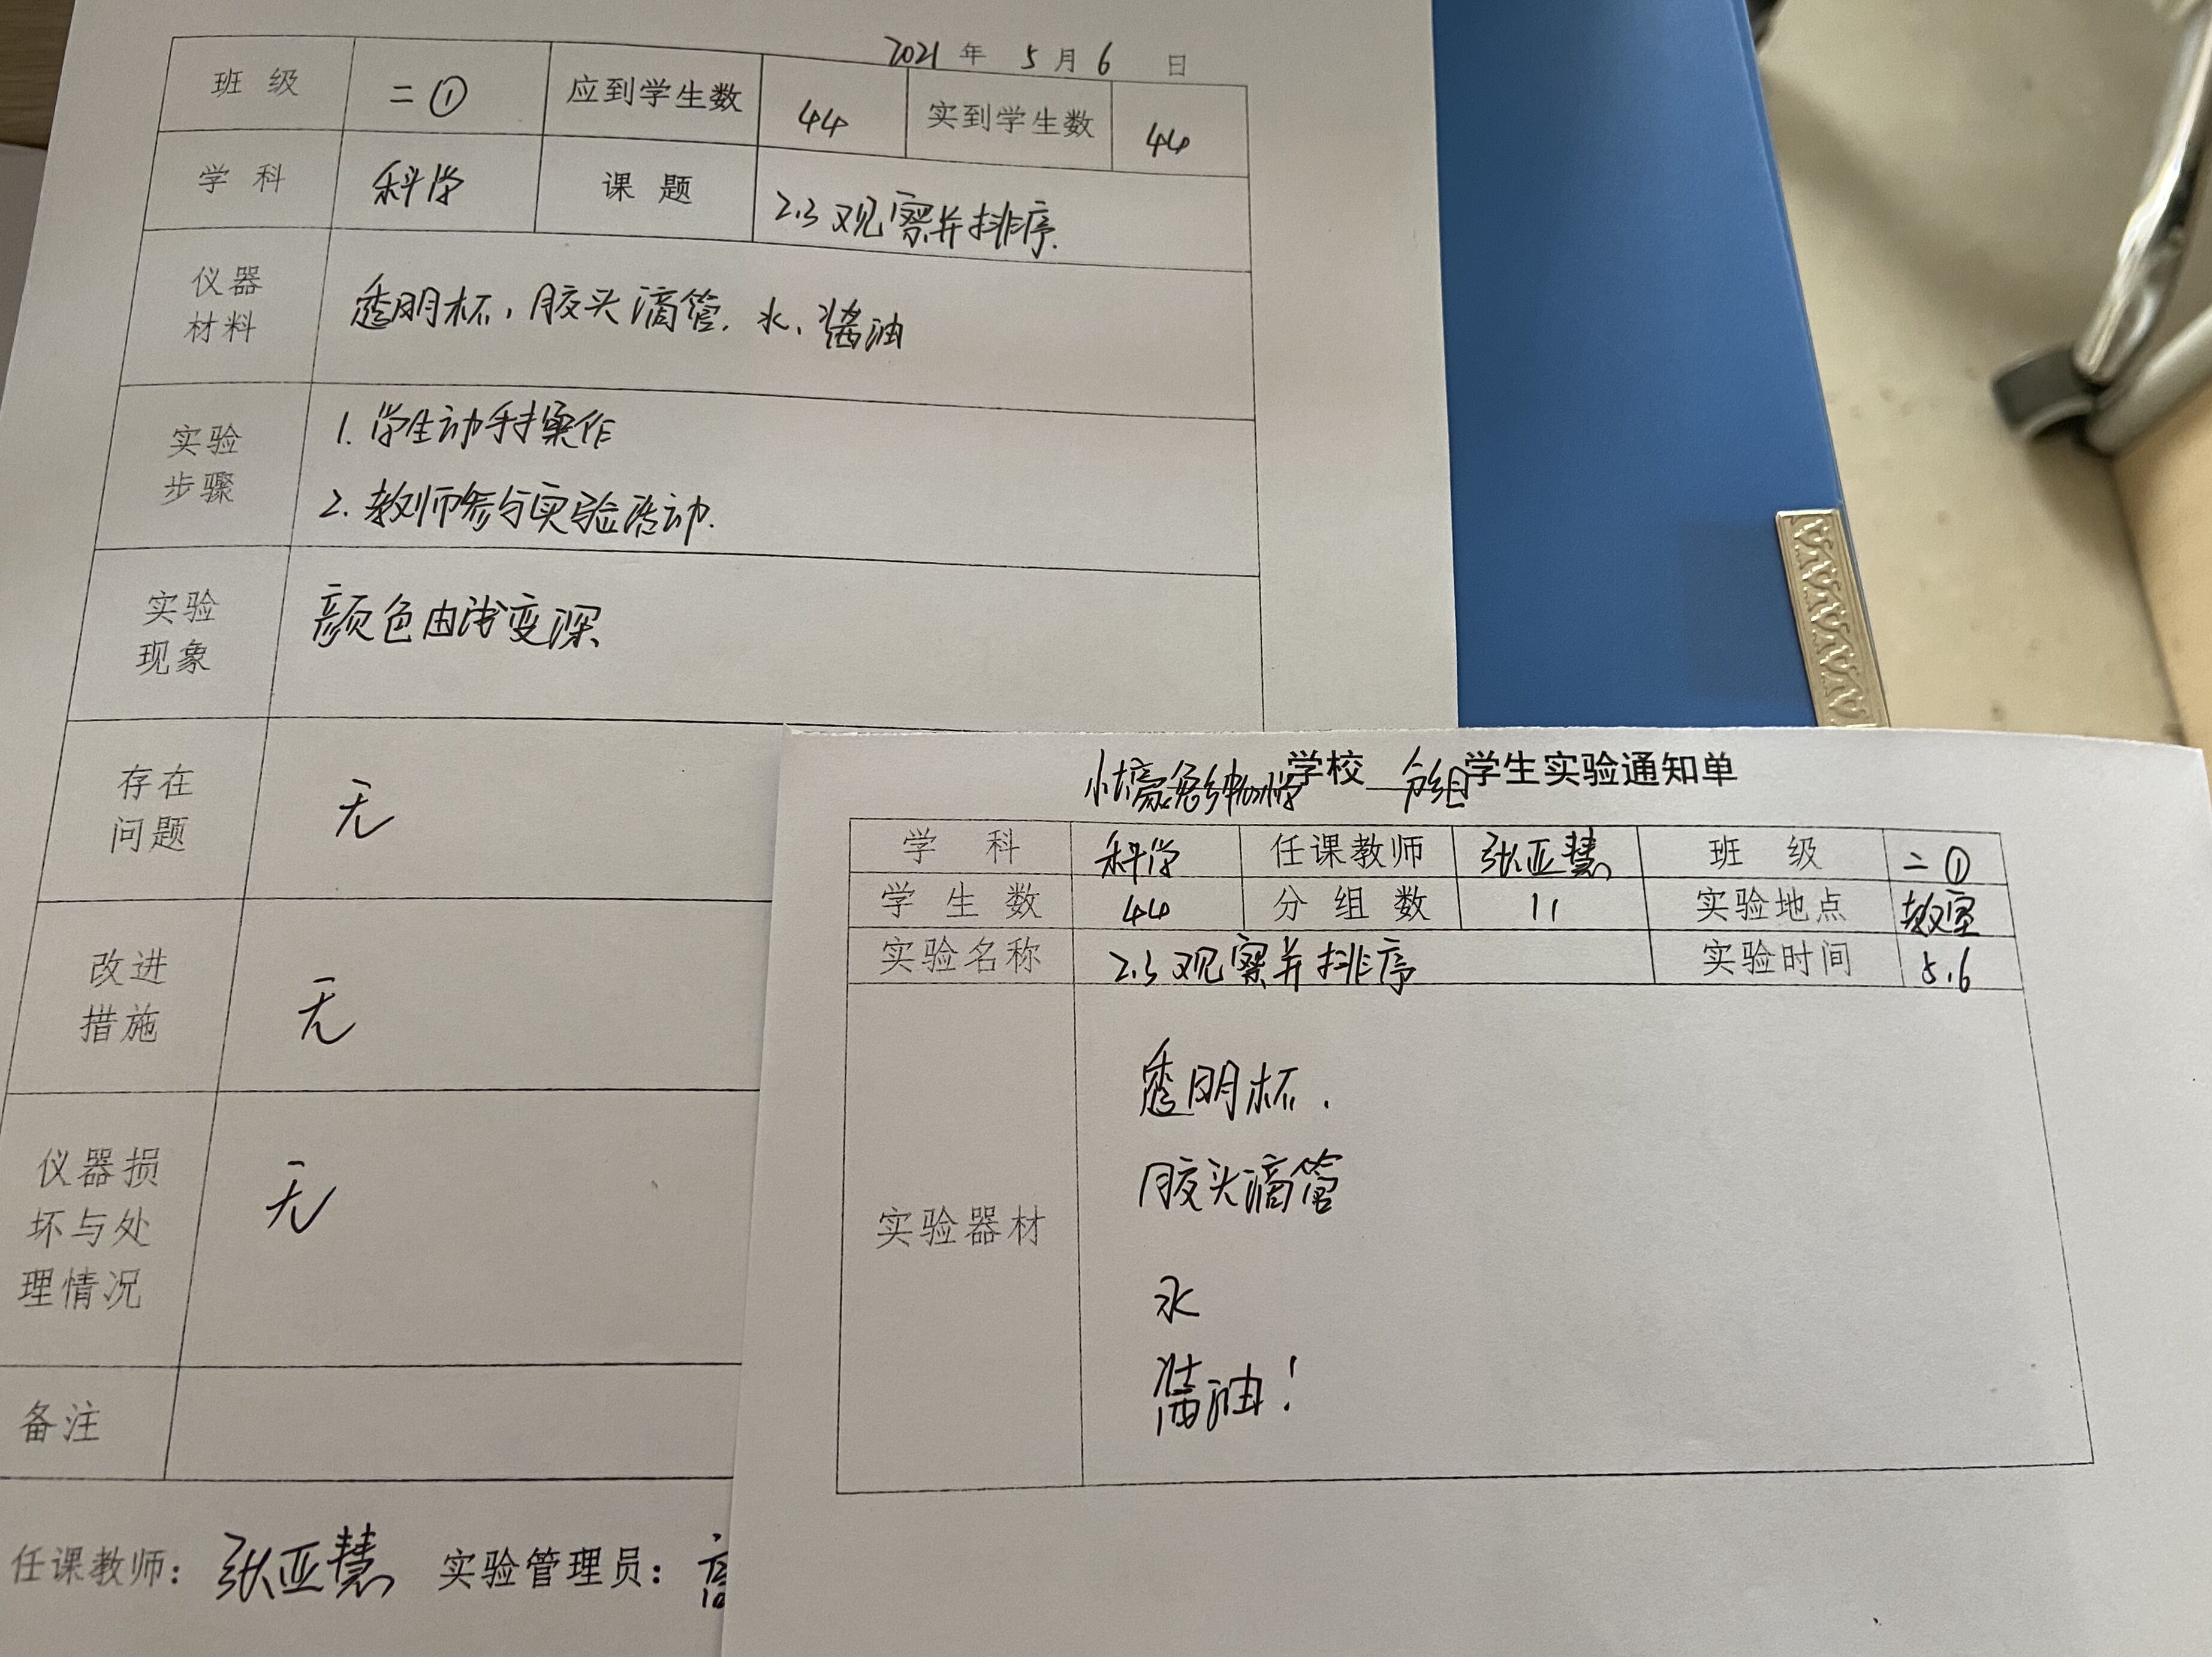 2021 年 5 月 6 日
班级 二① 应到学生数 44 实到学生数 44
学科 科学 课题 2.3 观察并排序.
仪器材料 透明杯、胶头滴管、水、酱油
实验步骤 1. 学生动手操作
2. 教师参与实验活动.
实验现象 颜色由浅变深
存在问题 无
改进措施 无
仪器损坏与处理情况 无
备注
任课教师: 张亚慧 实验管理员:
学校 分组 学生实验通知单
学科 科学 任课教师 张亚慧 班级 二①
学生数 44 分组数 11 实验地点 教室
实验名称 2.3 观察并排序 实验时间 5.6
实验器材
透明杯、
胶头滴管
水
酱油!